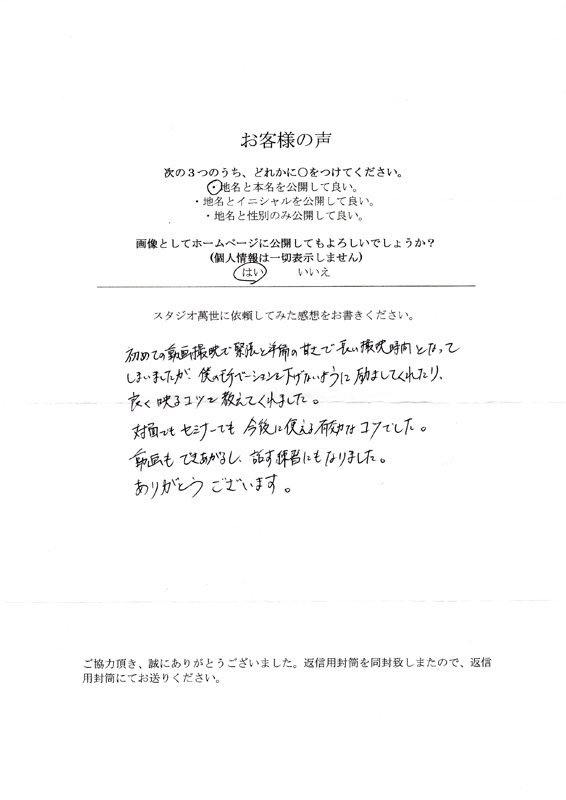 お客様の声
次の３つのうち、どれかに〇をつけてください。
・地名と本名を公開して良い。
・地名とイニシャルを公開して良い。
・地名と性別のみ公開して良い。
画像としてホームページに公開してもよろしいでしょうか？
(個人情報は一切表示しません)
はい　　いいえ
スタジオ萬世に依頼してみた感想をお書きください。
初めての動画撮影で緊張と準備の甘さで長い撮影時間となって
しまいましたが、僕のモチベーションを下げないように励ましてくれたり、
良く映るコツを教えてくれました。
対面でもセミナーでも今後に使える有効なコツでした。
動画もできあがるし、話す練習にもなりました。
ありがとうございます。
ご協力頂き、誠にありがとうございました。返信用封筒を同封致しまたので、返信
用封筒にてお送りください。